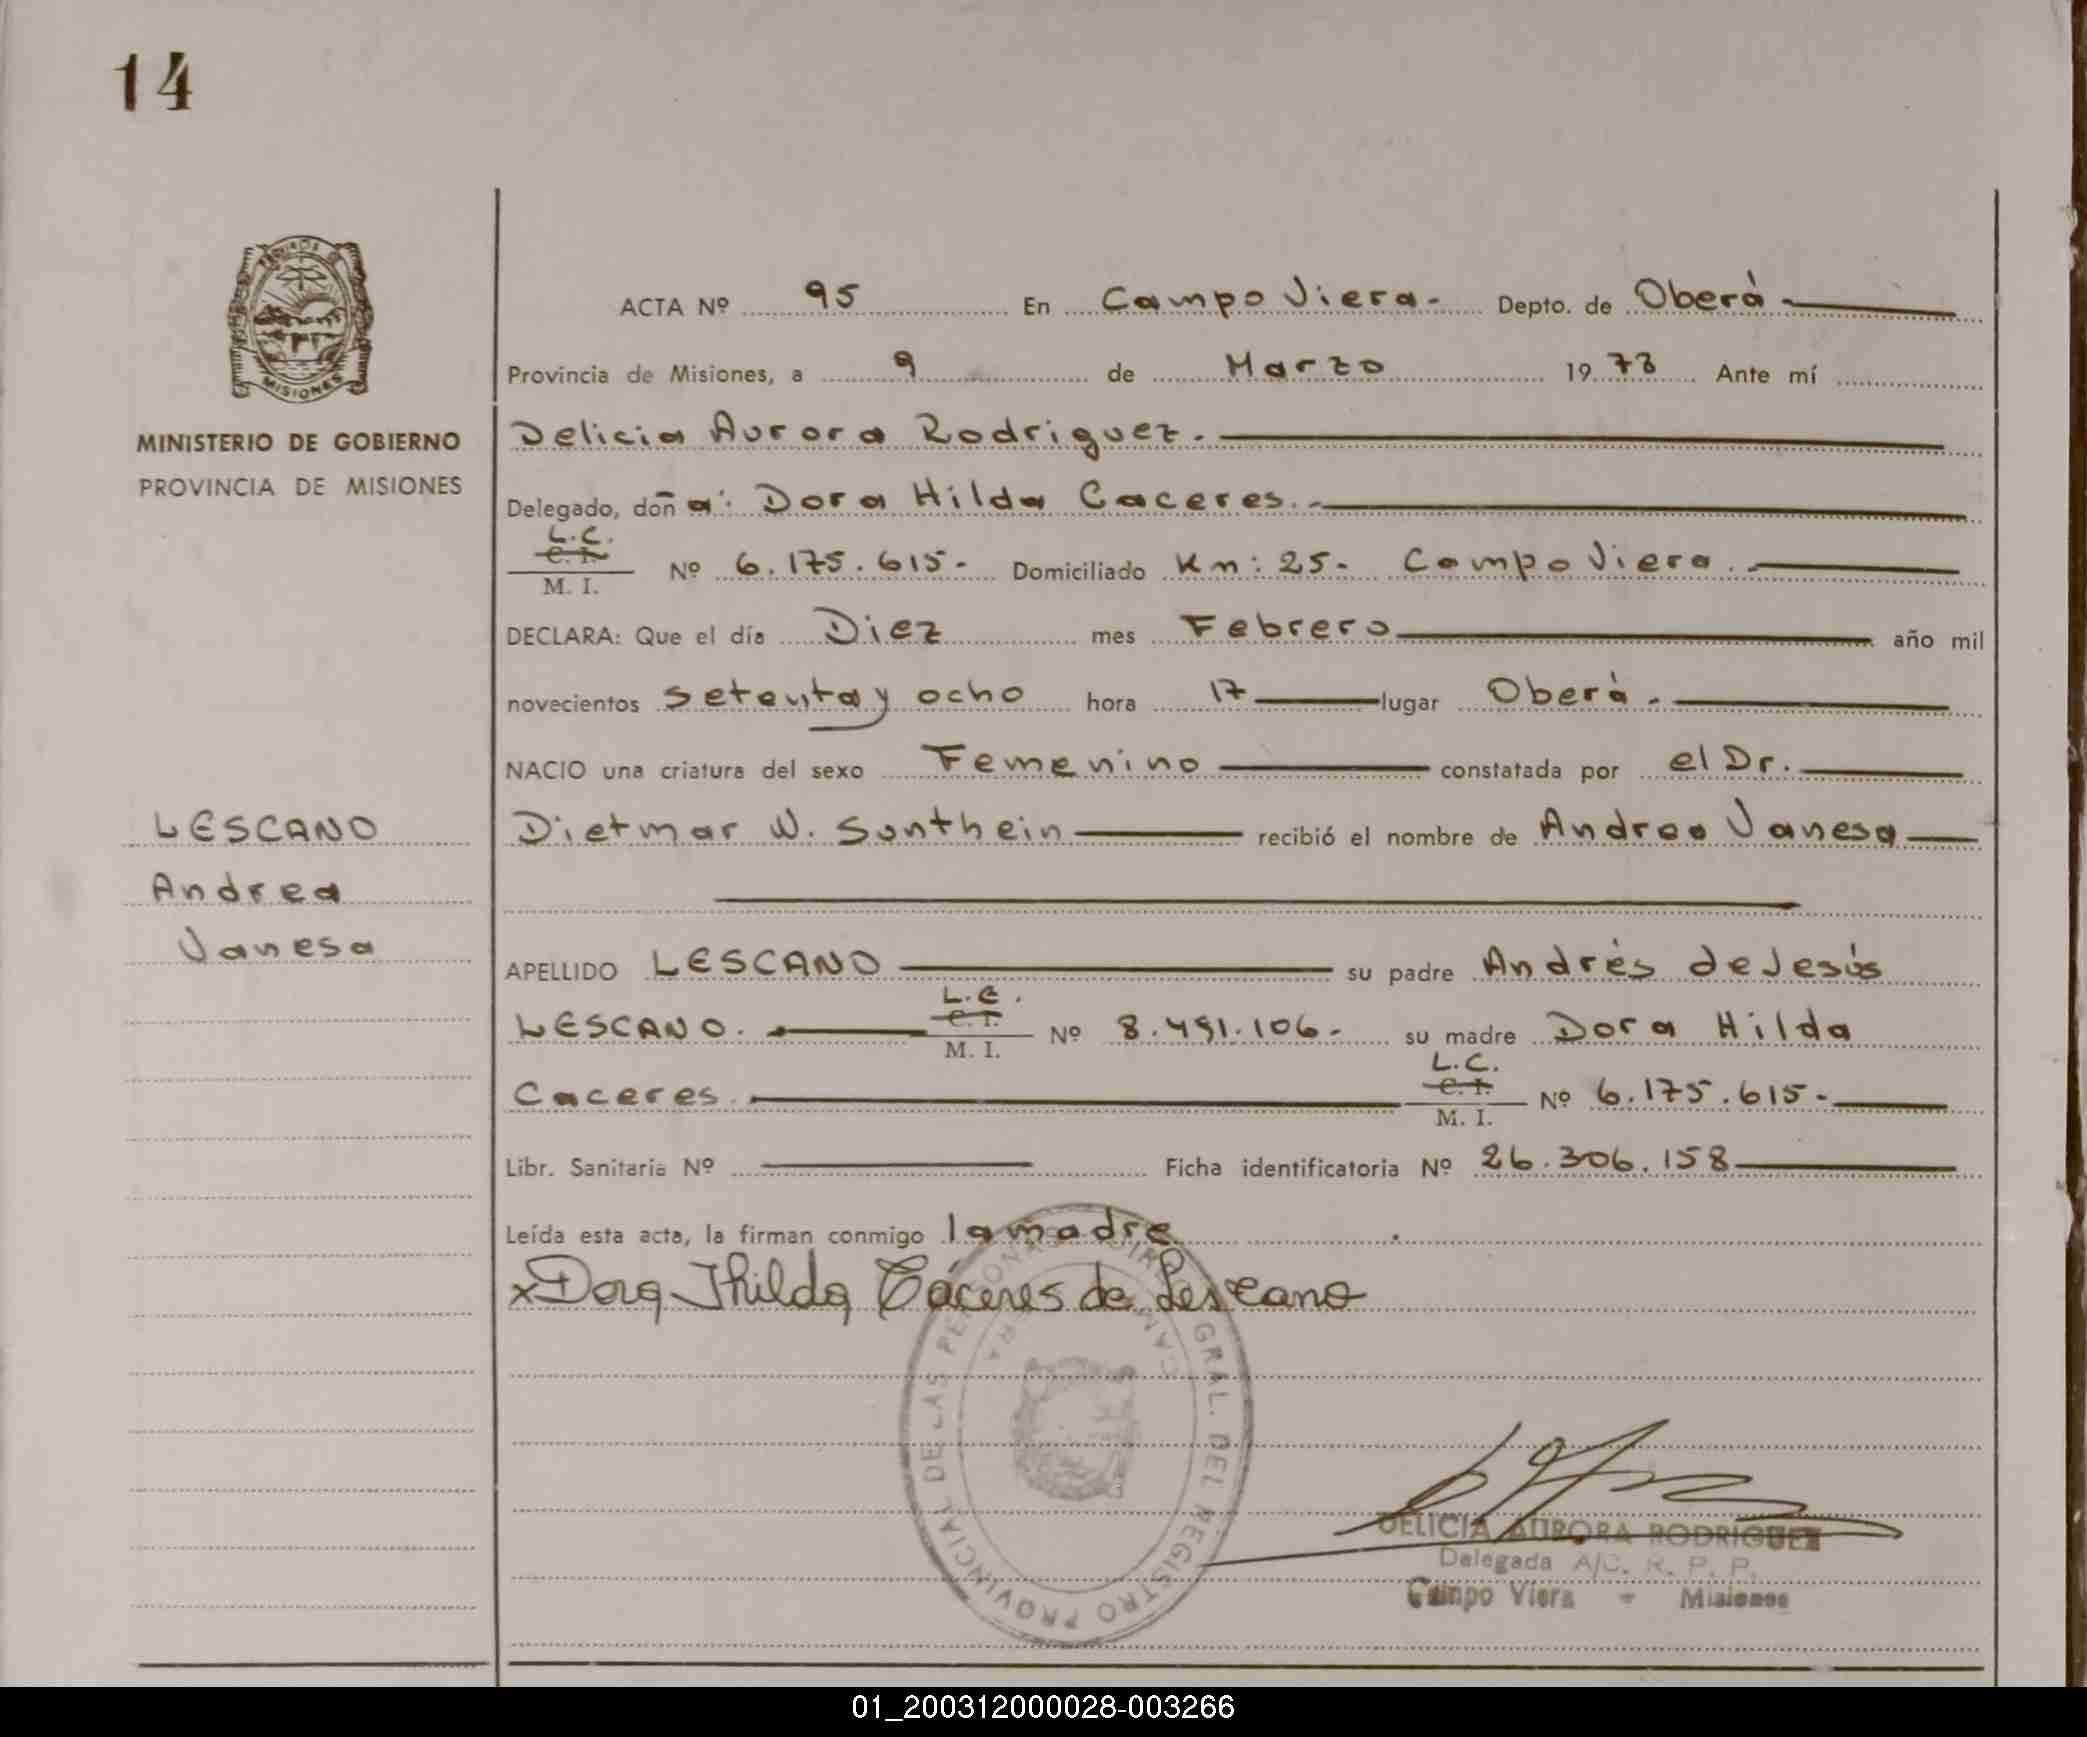 14
MISIONES
MINISTERIO DE GOBIERNO
PROVINCIA DE MISIONES
LESCANO
Andrea
Vanesa
ACTA Nº 95 En Campo Viera.- Depto. de Oberá
Provincia de Misiones, a 9 de Marzo 1978 Ante mí
Delicia Aurora Rodriguez.
Delegado, doña: Dora Hilda Caceres.-
L.C.
C. I.
M. I. Nº 6.175.615.- Domiciliado Km: 25.- Campo Viera.
DECLARA: Que el día Diez mes Febrero año mil
novecientos setenta y ocho hora 17 lugar Oberá.
NACIO una criatura del sexo Femenino constatada por el Dr.
Dietmar W. Sonthein recibió el nombre de Andrea Vanesa
APELLIDO LESCANO su padre Andrés de Jesús
L.E.
LESCANO. C. I. Nº 8.491.106.- su madre Dora Hilda
M. I.
L.C.
Caceres. C. I. Nº 6.175.615.-
M. I.
Libr. Sanitaria Nº Ficha identificatoria Nº 26.306.158
Leída esta acta, la firman conmigo la madre
x Dora Hilda Cáceres de Lescano
GRAL. DEL REGISTRO PROVINCIAL DE LAS PERSONAS
DELICIA AURORA RODRIGUEZ
Delegada A/C. R. P. P.
Campo Viera - Misiones
01_200312000028-003266